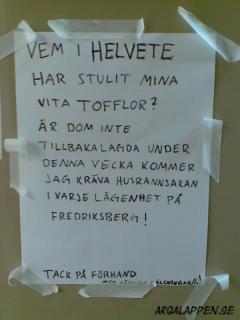 VEM I HELVETE
HAR STULIT MINA
VITA TOFFLOR?
ÄR DOM INTE
TILLBAKALAGDA UNDER
DENNA VECKA KOMMER
JAG KRÄVA HUSRANNSAKAN
I VARJE LÄGENHET PÅ
FREDRIKSBERG!
TACK PÅ FÖRHAND
ARGALAPPEN.SE